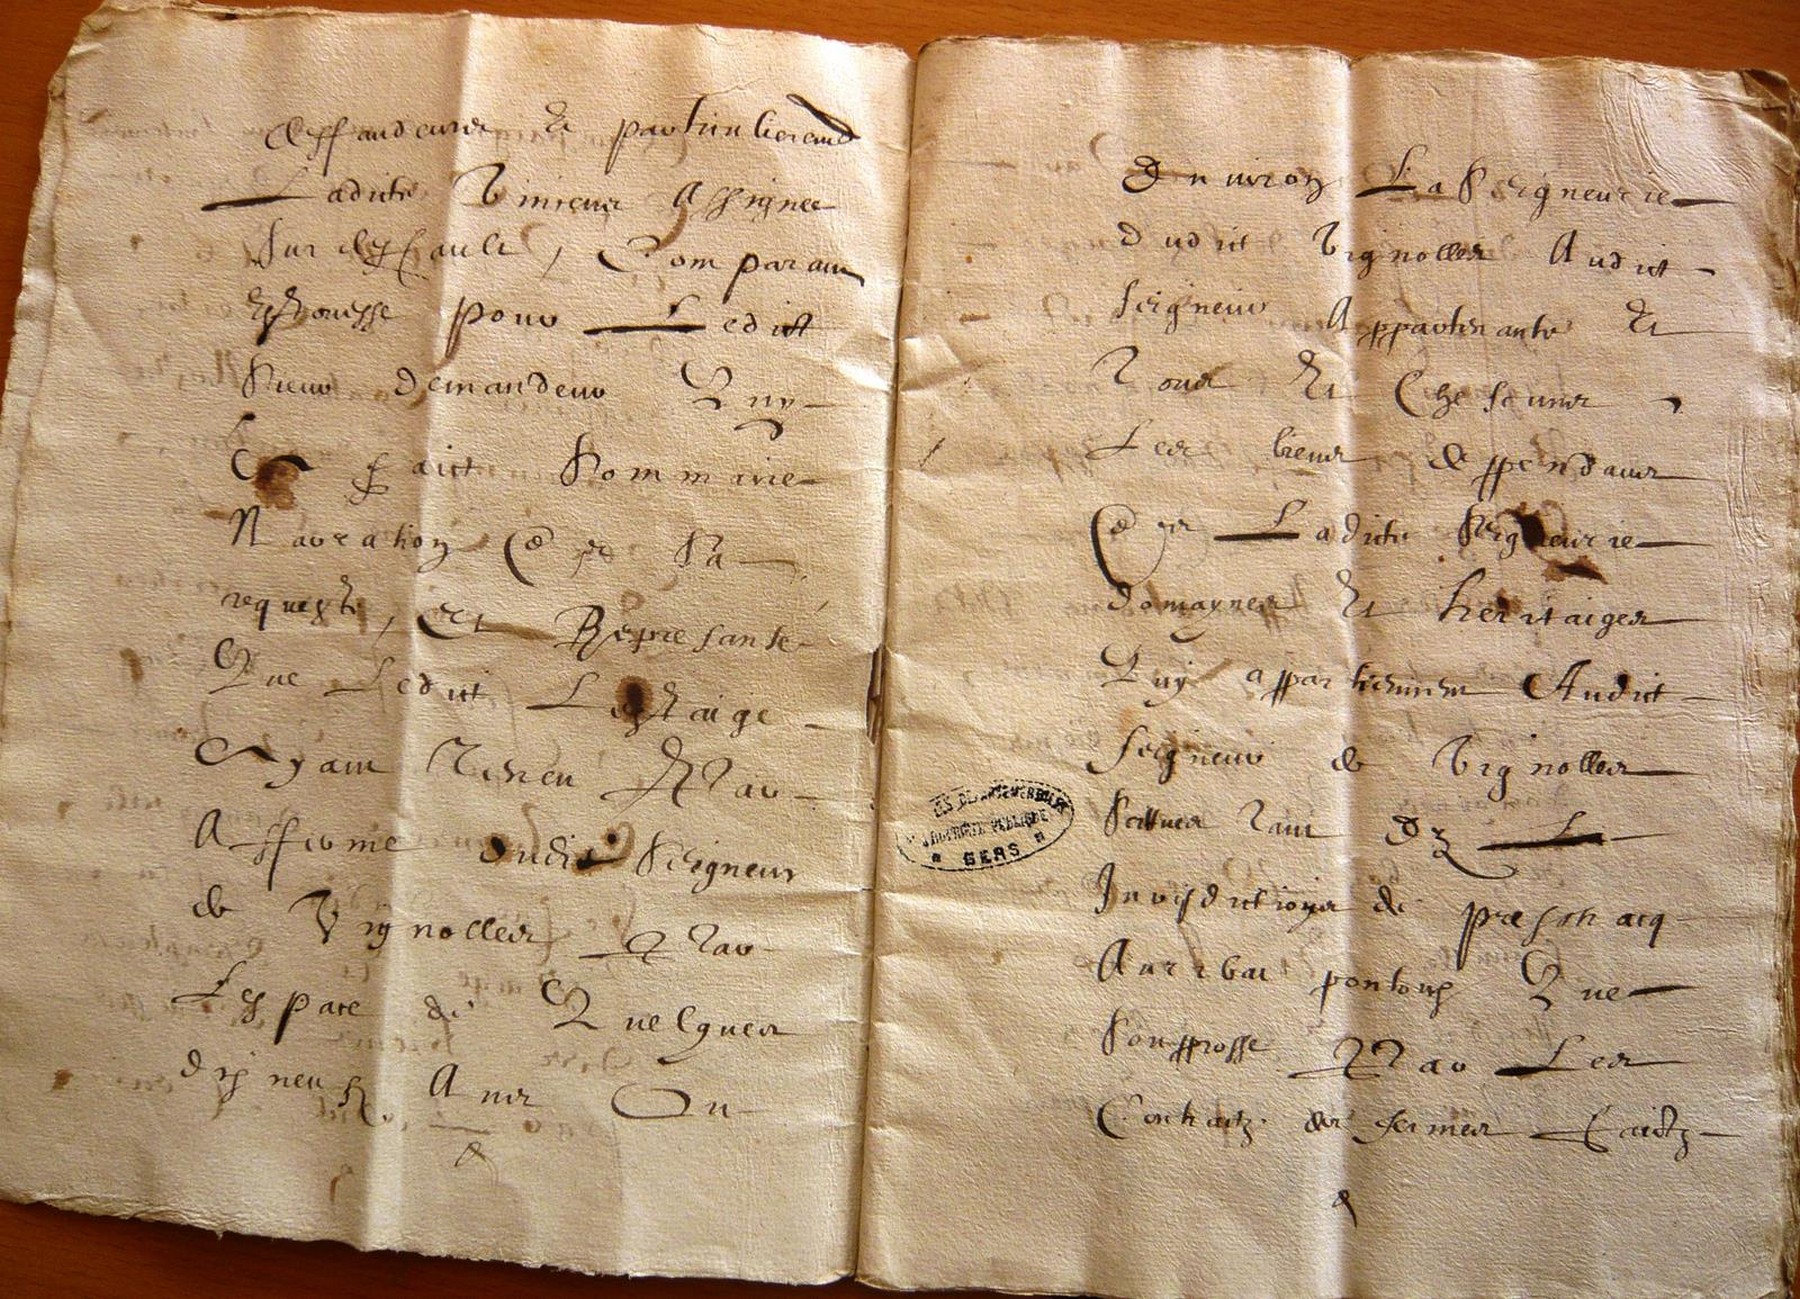 deffandeurs Et particulieremt
Ladicte Vineur Assignee
Sur deffault, Comparant
Destouesse pour Ledict
Sieur demandeur Quy
a faict Sommaire
Narration de Sa
requeste, Et Represante
Que Ledict Lestaige
Ayant Tenen Par
Afferme dudit Seigneur
de Vignolles Par
Lespace de Quelques
dix neuf Ans Ou
Environ La Seigneurie
dudict Vignolles Audict
Seigneur Appartenante Et
Tous Et Chescuns
Les biens deppendans
de Ladicte Seigneurie
domaynes Et heritaiges
Quy appartiennent Audict
Seigneur de Vignolles
Scitues Tant Ez
Jurisdictions de preschacq
pontoux Que
Souprosse Par Les
Contraitz des fermes faictz
LES DEPARTEMENTALES
PROPRIETE PUBLIQUE
GERS